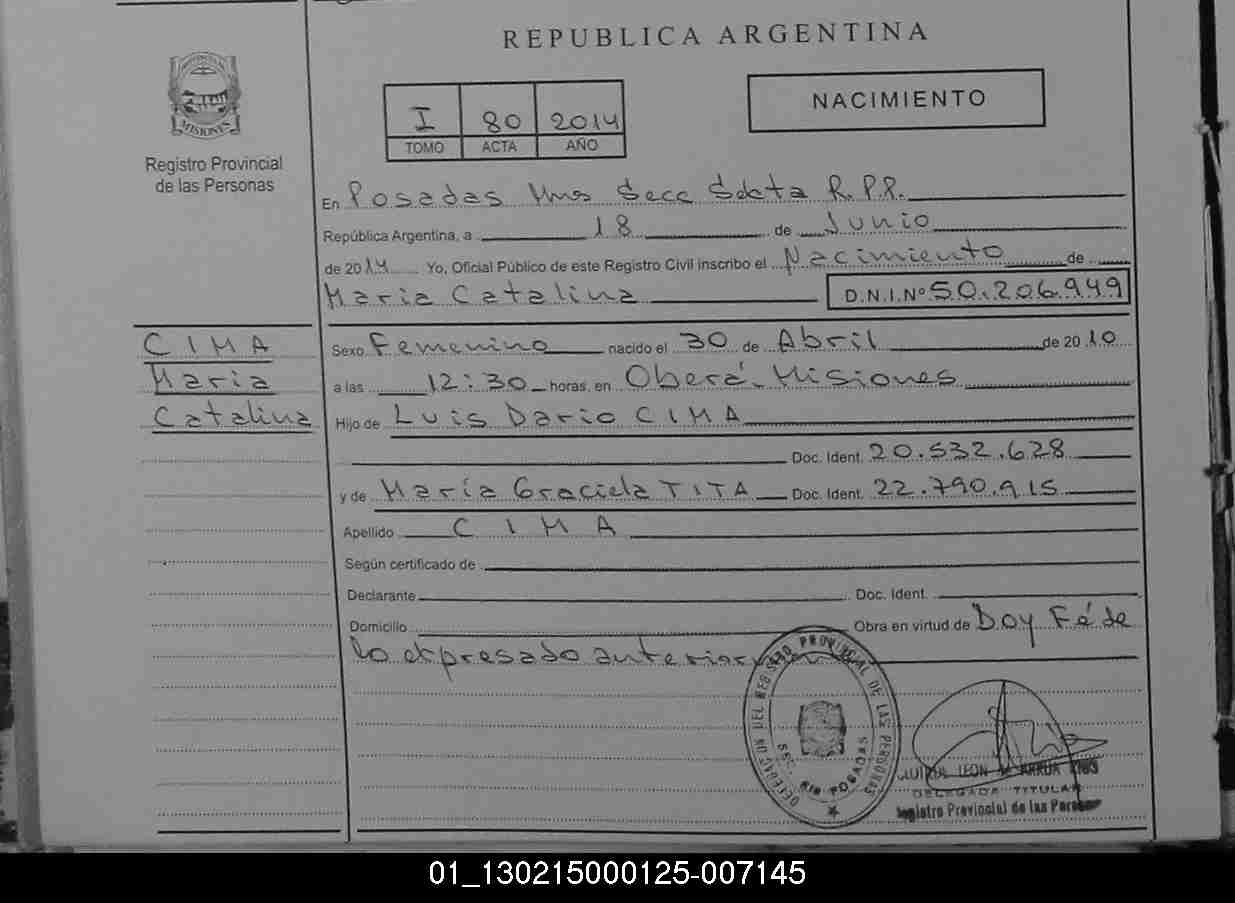 REPUBLICA ARGENTINA
PROVINCIA DE
MISIONES
Registro Provincial
de las Personas
I 80 2014
TOMO ACTA AÑO
NACIMIENTO
En Posadas Mnes Secc Sexta R.P.P.
República Argentina, a 18 de Junio
de 2014 Yo, Oficial Público de este Registro Civil inscribo el Nacimiento de
Maria Catalina D.N.I.Nº 50.206.949
CIMA
Maria
Catalina
Sexo Femenino nacido el 30 de Abril de 2010
a las 12:30 horas, en Oberá - Misiones
Hijo de Luis Dario CIMA
Doc. Ident. 20.532.628
y de María Graciela TITA Doc. Ident. 22.790.915
Apellido CIMA
Según certificado de
Declarante Doc. Ident.
Domicilio Obra en virtud de Doy Fé de
lo expresado anterior
DEL REGISTRO PROVINCIAL DE LAS PERSONAS
POSADAS
LEON
DELEGADA TITULAR
Registro Provincial de las Personas
01_130215000125-007145